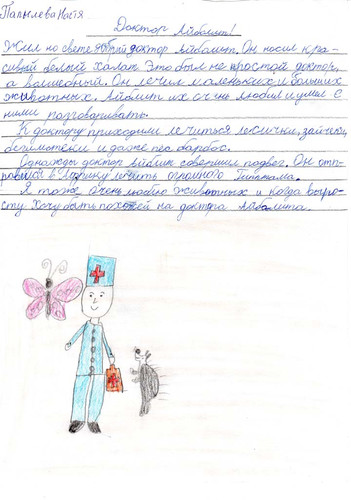 Папылева Настя
Доктор Айболит!
Жил на свете добрый доктор Айболит. Он носил кра-
сивый белый халат. Это был не простой доктор,
а волшебный. Он лечил маленьких и больших
животных. Айболит их очень любил и умел с
ними разговаривать.
К доктору приходили лечиться лисички, зайчики,
бегимотики и даже пёс барбос.
Однажды доктор Айблит совершил подвег. Он отп-
равился в Африку лечить огромного Гиппапама.
Я тоже очень люблю животных и когда выро-
сту хочу быть похожей на доктора Айболита.